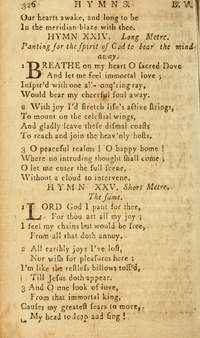 326 HYMNS. B. V.
Our hearts awake, and long to be
In the meridian blaze with thee.
HYMN XXIV. Long Metre.
Panting for the ſpirit of God to bear the mind
away.
1 BREATHE on my heart O ſacred Dove
And let me feel immortal love ;
Inſpir'd with one all-conq'ring ray,
Would bear my cheerful ſoul away.
2 With joy I'd ſtretch life's active ſtrings,
To mount on the celeſtial wings,
And gladly leave theſe diſmal coaſts
To reach and join the heav'nly hoſts.
3 O peaceful realms ! O happy home !
Where no intruding thought ſhall come ;
O let me enter the full ſcene,
Without a cloud to intervene.
HYMN XXV. Short Metre.
The ſame.
1 LORD God I pant for thee,
For thou art all my joy ;
I feel my chains but would be free,
From all that doth annoy.
2 All earthly joys I've loſt,
Nor wiſh for pleaſures here ;
I'm like the reſtleſs billows toſs'd,
Till Jeſus doth appear.
3 And O one look of love,
From that immortal king,
Cauſes my greateſt fears to move,
My head to leap and ſing !